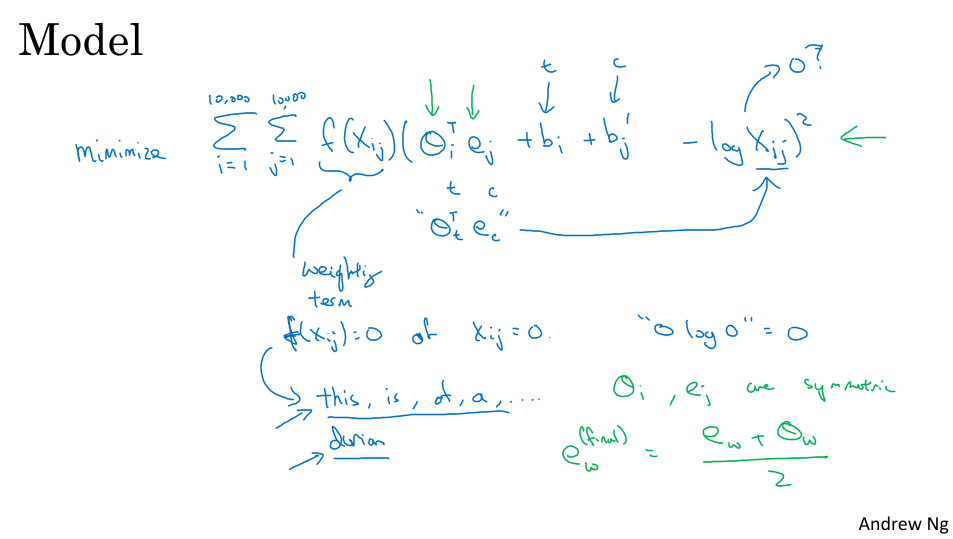 Model
minimize 10,000 Σ i=1 10,000 Σ j=1 f(Xij) (θiᵀ ej + bi + bj' − log Xij)²
t c 0?
t c
"θtᵀ ec"
weighting
term
f(xij)=0 if xij=0. "0 log 0" = 0
this, is, of, a, ....
θi, ej are symmetric
durian
ew(final) = ew + θw / 2
Andrew Ng